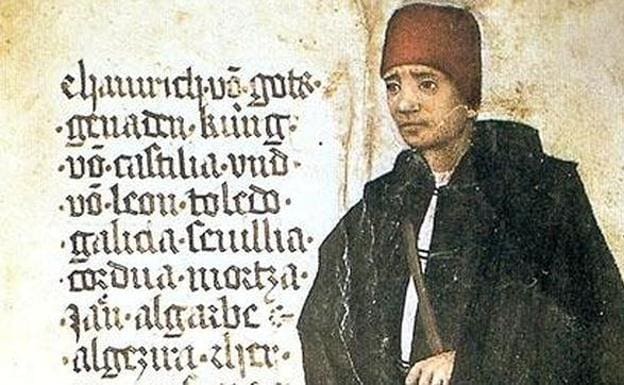 ehainrich · võ · gots ·
· genaden · küng ·
· võ · castilia · vnd ·
· võ · leon · toledo ·
· galicia · seuillia ·
cordua · mortza ·
· Jaũ · algarbe ·
· algezira ·